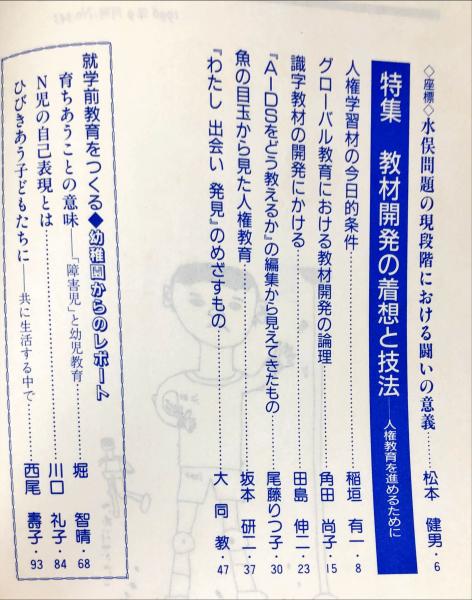 ◇座標◇水俣問題の現段階における闘いの意義……松本 健男・6
特集 教材開発の着想と技法——人権教育を進めるために
人権学習材の今日的条件……稲垣 有一・8
グローバル教育における教材開発の論理……角田 尚子・15
識字教材の開発にかける……田島 伸二・23
『AIDSをどう教えるか』の編集から見えてきたもの……尾藤りつ子・30
魚の目玉から見た人権教育……坂本 研二・37
『わたし 出会い 発見』のめざすもの……大 同 教・47
就学前教育をつくる◆幼稚園からのレポート
育ちあうことの意味——「障害児」と幼児教育……堀 智晴・68
N児の自己表現とは……川口 礼子・84
ひびきあう子どもたちに——共に生活する中で……西尾 壽子・93